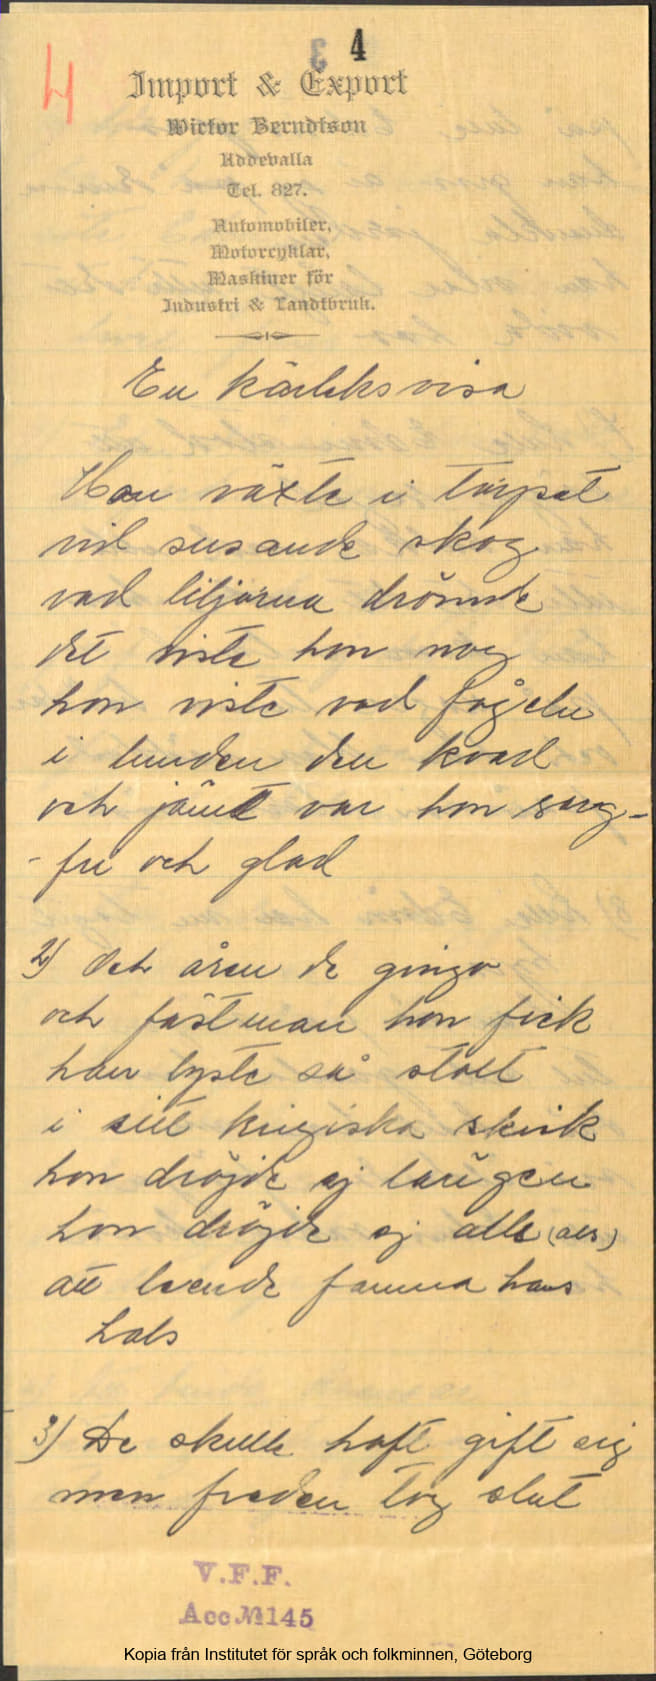 4
3 4
Import & Export
Wictor Berndtson
Uddevalla
Tel. 827.
Automobiler,
Motorcyklar,
Maskiner för
Industri & Landtbruk.
En kärleksvisa
Hon växte i torpet
vid susande skog
vad liljorna drömde
det viste hon nog
hon viste vad fogeln
i lunden den kvad
och jämt var hon sorg-
- fri och glad
2) Och åren de gingo
och fästman hon fick
han lyste så stolt
i sitt krigiska skick
hon dröjde ej längen
hon dröjde ej alls (als)
att leende famna hans
hals
3) De skulle haft gift sig
men freden tog slut
V.F.F.
Acc № 145
Kopia från Institutet för språk och folkminnen, Göteborg